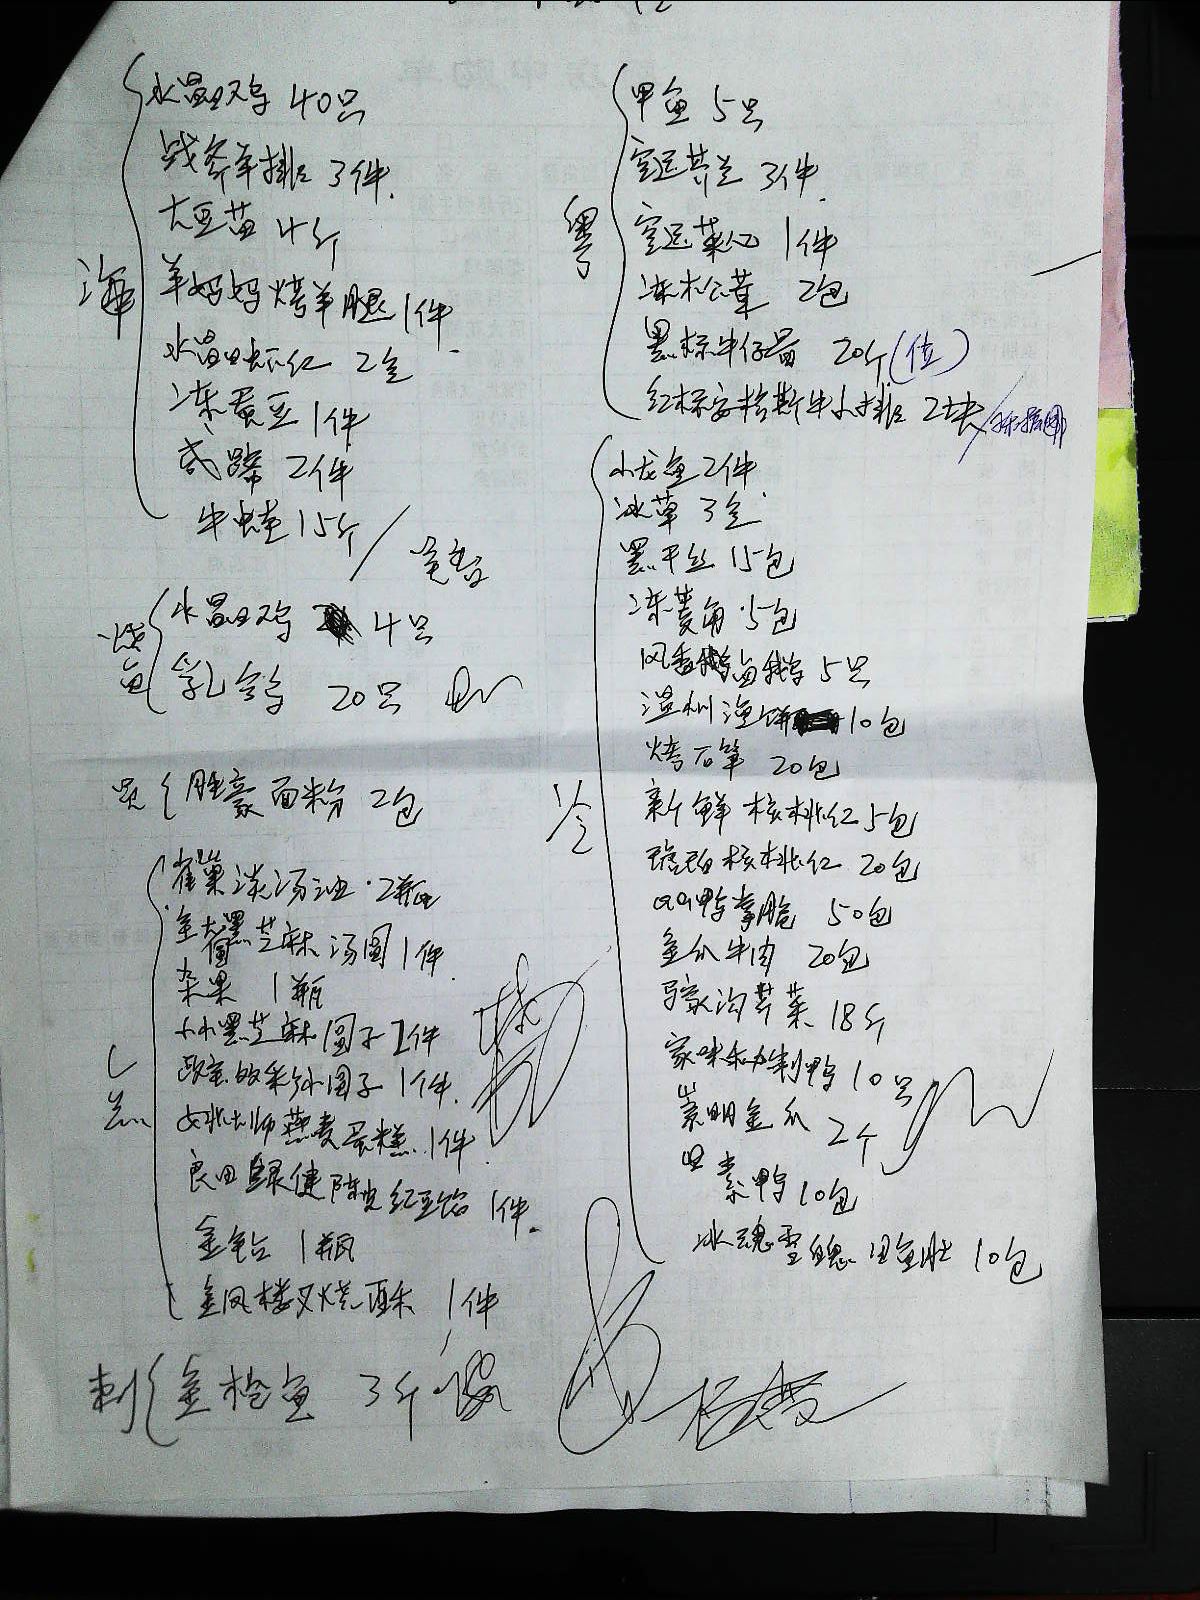 海
水晶鸡 40只
战斧羊排 3件
大豆苗 4斤
羊妈妈烤羊腿 1件
水晶虾仁 2盒
冻蚕豆 1件
蹄 2件
牛蛙 15斤
烧
水晶鸡 4只
乳鸽 20只
面粉 2包
点
雀巢淡汤油 2瓶
黑芝麻汤圆 1件
杂果 1瓶
小小黑芝麻圆子 1件
圆子 1件
大师燕麦蛋糕 1件
良田绿健陈皮红豆馅 1件
金钻 1瓶
金凤楼叉烧酥 1件
刺
金枪鱼 3斤
粤
甲鱼 5只
空运芥兰 3件
空运菜心 1件
冻松茸 2包
黑标牛仔骨 20斤(位)
红标安格斯牛小排 2块
冷
小龙鱼 2件
冰草 3盒
黑干丝 15包
冻菱角 5包
风香鹅 5只
温州渔饼 10包
烤石笋 20包
新鲜核桃仁 5包
琥珀核桃仁 20包
QQ鸭掌脆 50包
金瓜牛肉 20包
马家沟芹菜 18斤
家味制鸭 10只
崇明金瓜 2个
素鸭 10包
冰魂雪魄 鱼肚 10包